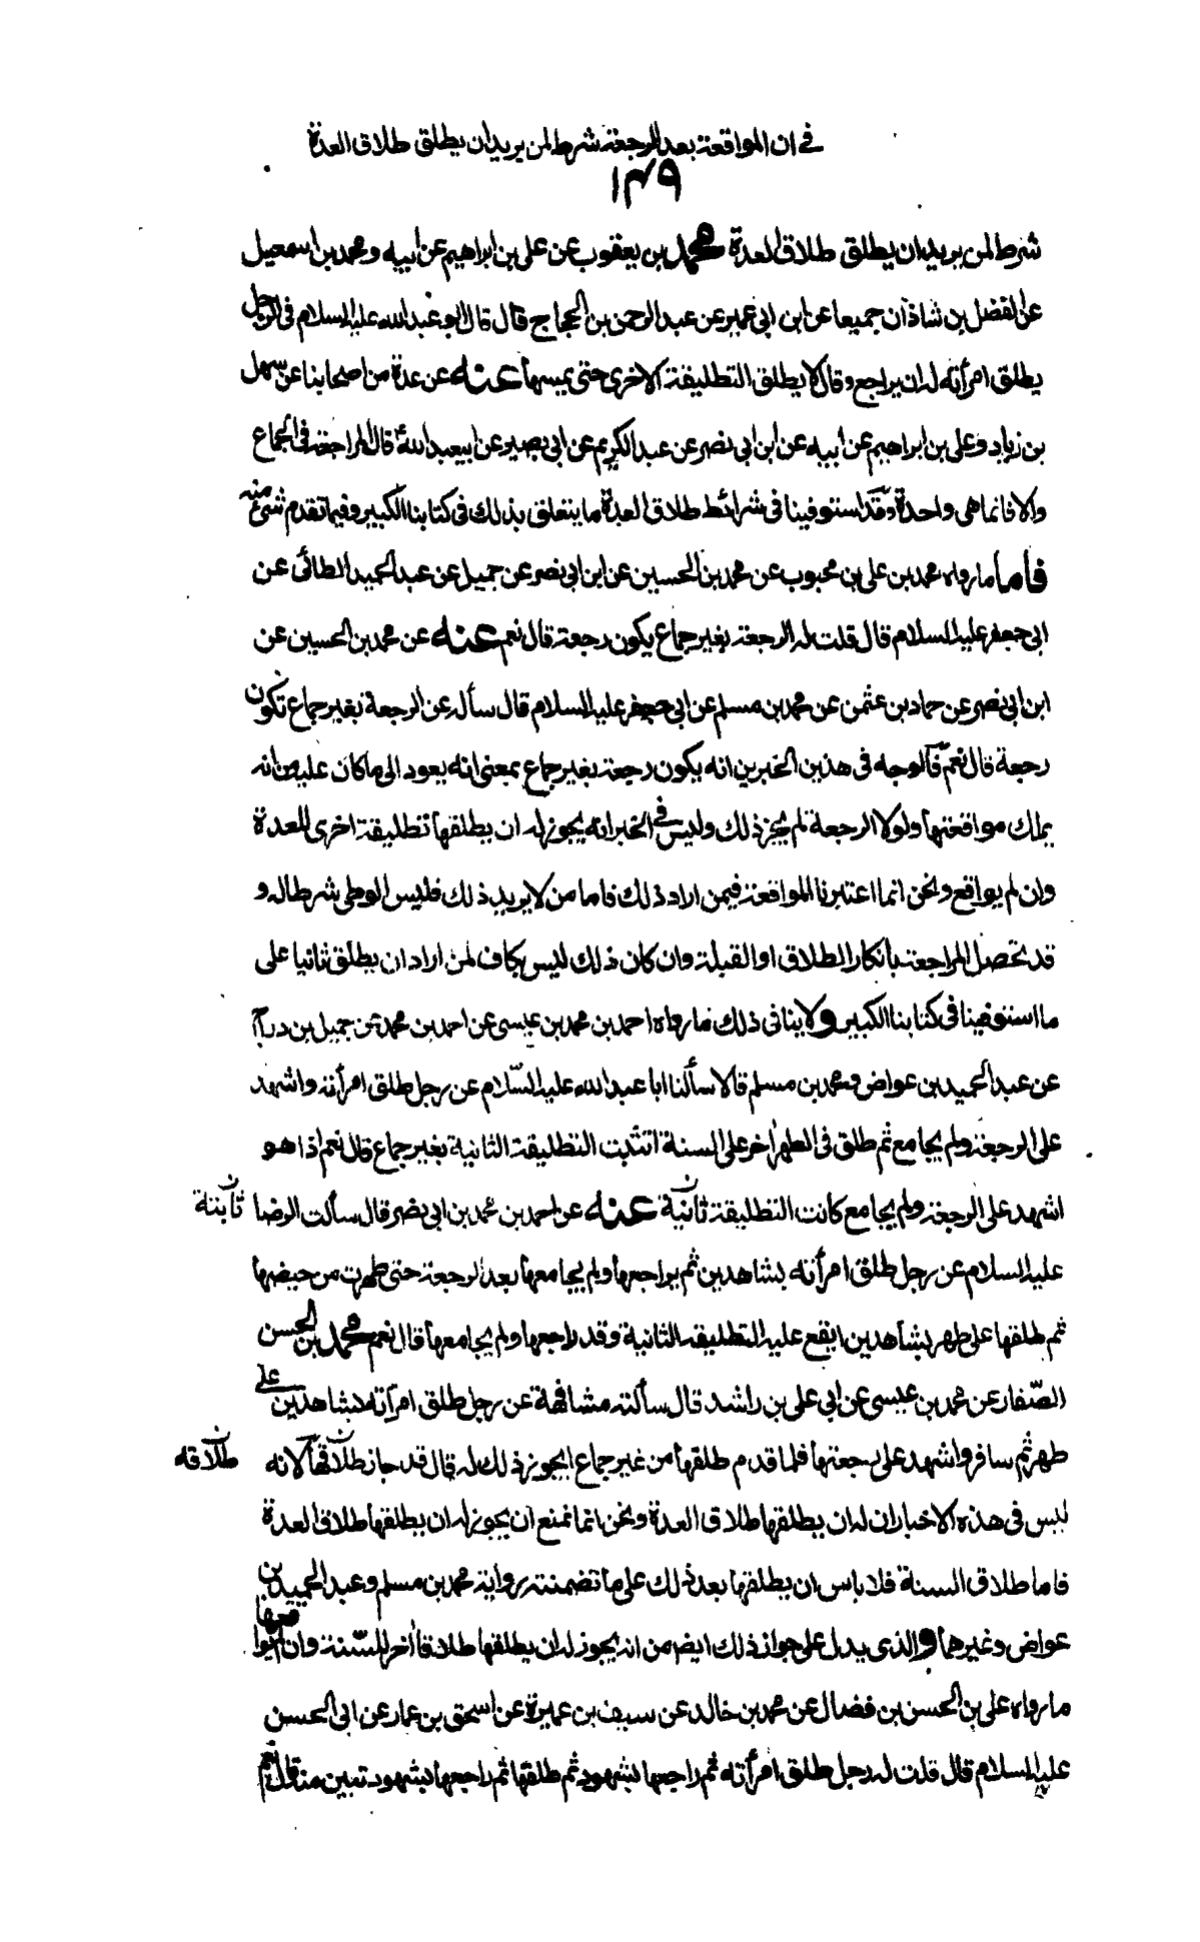 في ان المواقعة بعد الرجعة شرط لمن يريد ان يطلق طلاق العدة
١٤٩
شرط لمن يريد ان يطلق طلاق العدة محمد بن يعقوب عن على بن ابراهيم عن ابيه و محمد بن اسمعيل
عن الفضل بن شاذان جميعا عن ابن ابى عمير عن عبد الرحمن بن الحجاج قال قال ابو عبد الله عليه السلام فى الرجل
يطلق امرأته له ان يراجع وقال لا يطلق التطليقة الاخرى حتى يمسها عنه عن عدة من اصحابنا عن سهل
بن زياد وعلى بن ابراهيم عن ابيه عن ابن ابى نصر عن عبد الكريم عن ابى بصير عن ابيعبد الله قال المراجعة فى الجماع
والا فانما هى واحدة وقد استوفينا فى شرائط طلاق العدة ما يتعلق بذلك فى كتابنا الكبير وفيما تقدم شئ منه
فاما ما رواه محمد بن على بن محبوب عن محمد بن الحسين عن ابن ابى نصر عن جميل عن عبد الحميد الطائى عن
ابى جعفر عليه السلام قال قلت له الرجعة بغير جماع يكون رجعة قال نعم عنه عن محمد بن الحسين عن
ابن ابى نصر عن حماد بن عثمن عن محمد بن مسلم عن ابى جعفر عليه السلام قال سأله عن الرجعة بغير جماع تكون
رجعة قال نعم فالوجه فى هذين الخبرين انه يكون رجعة بغير جماع بمعنى انه يعود الى ما كان عليه من انه
يملك مواقعتها ولولا الرجعة لم يجز ذلك وليس في الخبر انه يجوز له ان يطلقها تطليقة اخرى للعدة
وان لم يواقع ونحن انما اعتبرنا المواقعة فيمن اراد ذلك فاما من لا يريد ذلك فليس الوطى شرطا له و
قد تحصل المراجعة بانكار الطلاق او القبلة وان كان ذلك ليس بكاف لمن اراد ان يطلق ثانيا على
ما استوفينا فى كتابنا الكبير ولا ينافى ذلك ما رواه احمد بن محمد بن عيسى عن احمد بن محمد عن جميل بن دراج
عن عبد الحميد بن عواض ومحمد بن مسلم قالا سألنا ابا عبد الله عليه السّلام عن رجل طلق امرأته واشهد
على الرجعة ولم يجامع ثم طلق فى الطهر اخر على السنة اتثبت التطليقة الثانية بغير جماع قال نعم اذا هو
اشهد على الرجعة ولم يجامع كانت التطليقة ثانية عنه عن احمد بن محمد بن ابى نصر قال سألت الرضا ثابتة ن
عليه السلام عن رجل طلق امرأته بشاهدين ثم يراجعها ولم يجامعها بعد الرجعة حتى طهرت من حيضها
ثم طلقها على طهر بشاهدين ايقع عليه التطليقة الثانية وقد راجعها ولم يجامعها قال نعم محمد بن الحسن
الصّفار عن محمد بن عيسى عن ابي على بن راشد قال سألته مشافهة عن رجل طلق امرأته بشاهدين على
طهر ثم سافر واشهد على رجعتها فلما قدم طلقها من غير جماع ايجوز ذلك له قال قد جاز طلاقها لانه طلاقه ن
ليس فى هذه الاخبار ان له ان يطلقها طلاق العدة ونحن انما نمنع ان يجوز له ان يطلقها طلاق العدة
فاما طلاق السنة فلا باس ان يطلقها بعد ذلك على ما تضمنته رواية محمد بن مسلم وعبد الحميد بن
عواض وغيرهما والذى يدل على جواز ذلك ايضا من انه يجوز له ان يطلقها طلاقا اخر للسّنة وان
ما رواه على بن الحسن بن فضال عن محمد بن خالد عن سيف بن عميرة عن اسحق بن عمار عن ابى الحسن
عليه السلام قال قلت له رجل طلق امرأته ثم راجعها بشهود ثم طلقها ثم راجعها بشهود تبين منه قال نعم